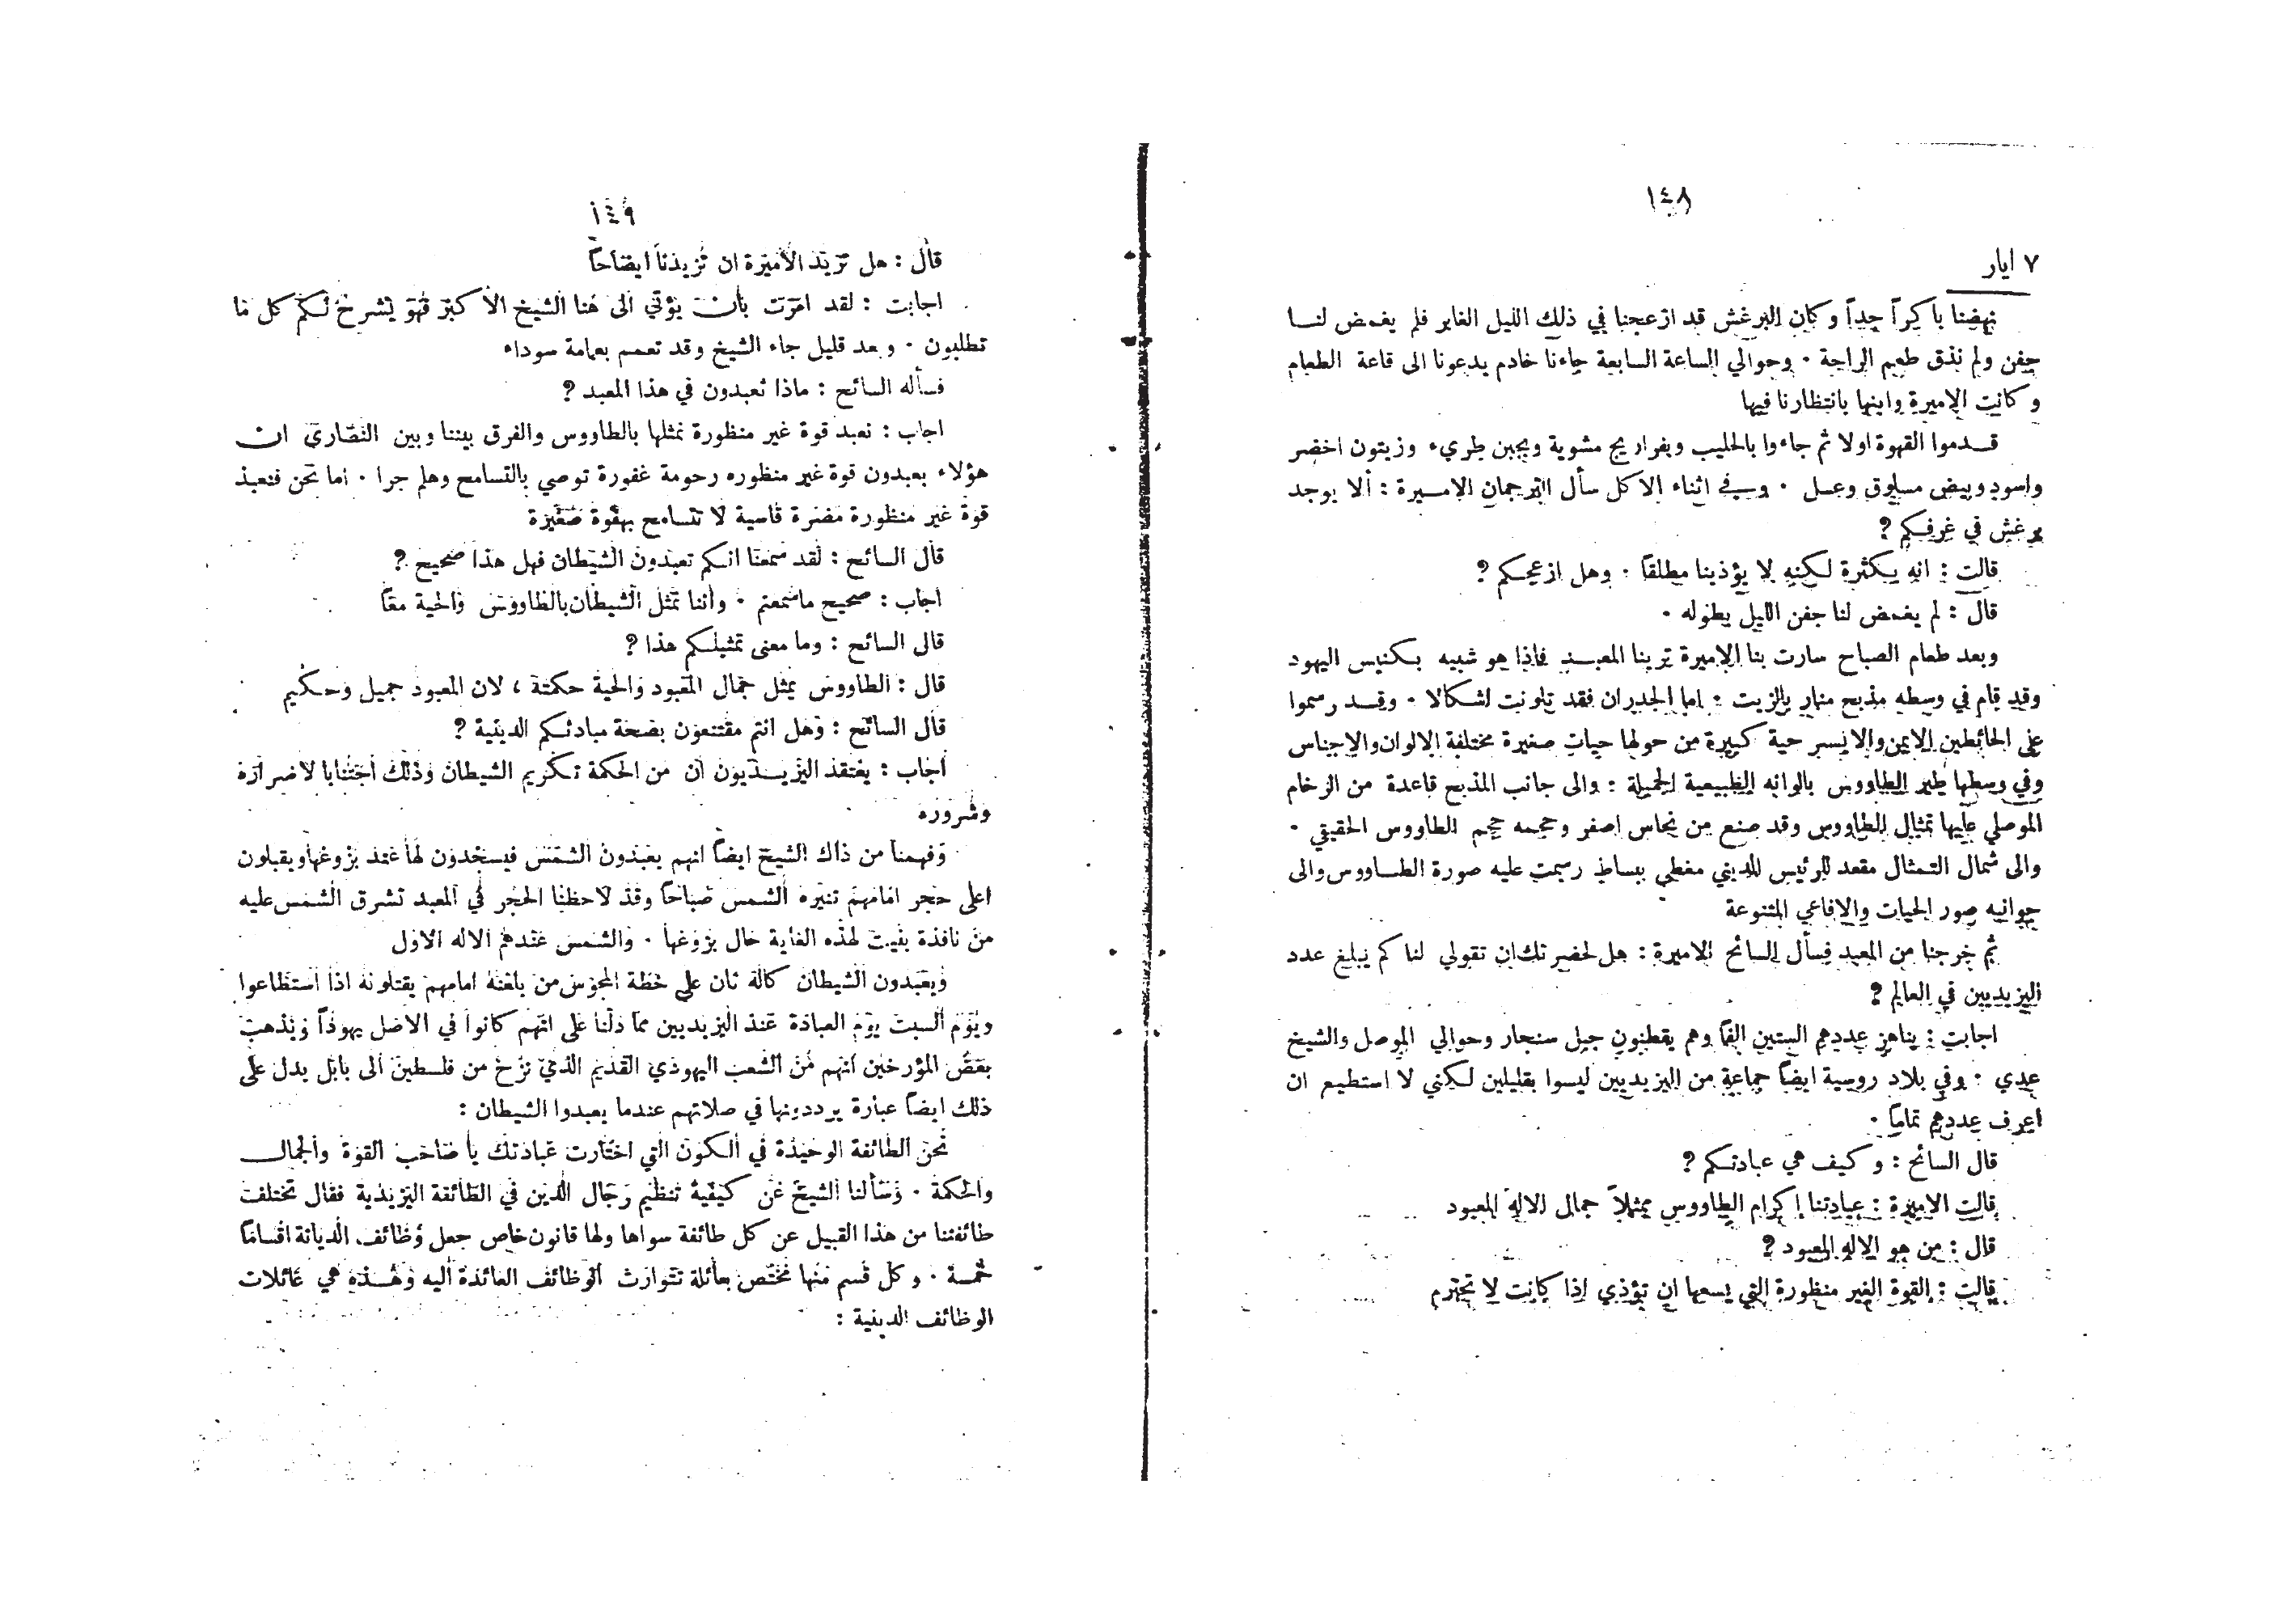 ١٤٨
٧ ايار
نهضنا باكراً جداً وكان البرغش قد ازعجنا في ذلك الليل الغابر فلم يغمض لنا
جفن ولم نذق طعم الراحة . وحوالي الساعة السابعة جاءنا خادم يدعونا الى قاعة الطعام
وكانت الاميرة وابنها بانتظارنا فيها
قدموا القهوة اولا ثم جاءوا بالحليب وبفراريج مشوية وبجبن طريء وزيتون اخضر
واسود وبيض مسلوق وعسل . وفي اثناء الاكل سأل الترجمان الاميرة : ألا يوجد
برغش في غرفكم ?
قالت : انه يكثرة لكنه لا يؤذينا مطلقاً . وهل ازعجكم ?
قال : لم يغمض لنا جفن الليل بطوله .
وبعد طعام الصباح سارت بنا الاميرة ترينا المعبد فاذا هو شبيه بكنيس اليهود
وقد قام في وسطه مذبح منار بالزيت . اما الجدران فقد تلونت اشكالا . وقد رسموا
على الحائطين الايمن والايسر حية كبيرة من حولها حيات صغيرة مختلفة الالوان والاجناس
وفي وسطها طير الطاووس بالوانه الطبيعية الجميلة : والى جانب المذبح قاعدة من الرخام
الموصلي عليها تمثال للطاووس وقد صنع من نحاس اصفر وحجمه حجم الطاووس الحقيقي .
والى شمال التمثال مقعد للرئيس الديني مغطى ببساط رسمت عليه صورة الطاووس والى
جوانبه صور الحيات والافاعي المتنوعة
ثم خرجنا من المعبد فسأل السائح الاميرة : هل لحضرتك ان تقولي لنا كم يبلغ عدد
اليزيديين في العالم ?
اجابت : يناهز عددهم الستين الفاً وهم يقطنون جبل سنجار وحوالي الموصل والشيخ
عدي . وفي بلاد روسية ايضاً جماعة من اليزيديين ليسوا بقليلين لكني لا استطيع ان
اعرف عددهم تماماً .
قال السائح : وكيف هي عبادتكم ?
قالت الاميرة : عبادتنا إكرام الطاووس ممثلاً جمال الاله المعبود
قال : من هو الاله المعبود ?
قالت : القوة الغير منظورة التي يسعها ان تؤذي اذا كانت لا تحترم
١٤٩
قال : هل تريد الاميرة ان تزيدنا ايضاحاً
اجابت : لقد امرت بأن يؤتي الى هنا الشيخ الاكبر فهو يشرح لكم كل ما
تطلبون . وبعد قليل جاء الشيخ وقد تعمم بعمامة سوداء
فسأله السائح : ماذا تعبدون في هذا المعبد ?
اجاب : نعبد قوة غير منظورة نمثلها بالطاووس والفرق بيننا وبين النصارى ان
هؤلاء يعبدون قوة غير منظوره رحومة غفورة توصي بالتسامح وهلم جرا . اما نحن فنعبد
قوة غير منظورة مضرة قاسية لا تتسامح بهفوة صغيرة
قال السائح : لقد سمعنا انكم تعبدون الشيطان فهل هذا صحيح ?
اجاب : صحيح ماسمعتم . واننا نمثل الشيطان بالطاووس والحية معاً
قال السائح : وما معنى تمثيلكم هذا ?
قال : الطاووس يمثل جمال المعبود والحية حكمتة ، لان المعبود جميل وحكيم
قال السائح : وهل انتم مقتنعون بصحة مبادئكم الدينية ?
اجاب : يعتقد اليزيديون ان من الحكمة تكريم الشيطان وذلك اجتنابا لاضراره
وشروره
وفهمنا من ذاك الشيخ ايضاً انهم يعبدون الشمس فيسجدون لها عند بزوغها ويقبلون
اعلى حجر امامهم تنيره الشمس صباحاً وقد لاحظنا الحجر في المعبد تشرق الشمس عليه
من نافذة بنيت لهذه الغاية حال بزوغها . والشمس عندهم الاله الاول
ويعبدون الشيطان كاله ثان على خطة المجوس من يلعنه امامهم يقتلونه اذا استطاعوا
ويوم السبت يوم العبادة عند اليزيديين مما دلنا على انهم كانوا في الاصل يهوداً ويذهب
بعض المؤرخين انهم من الشعب اليهودي القديم الذي نزح من فلسطين الى بابل يدل على
ذلك ايضاً عبارة يرددونها في صلاتهم عندما يعبدوا الشيطان :
نحن الطائفة الوحيدة في الكون التي اختارت عبادتك يا صاحب القوة والجمال
والحكمة . وسألنا الشيخ عن كيفية تنظيم رجال الدين في الطائفة اليزيدية فقال تختلف
طائفتنا من هذا القبيل عن كل طائفة سواها ولها قانون خاص جعل وظائف الديانة اقساماً
خمسة . وكل قسم منها مختص بعائلة تتوارث الوظائف العائدة اليه وهذه هي عائلات
الوظائف الدينية :